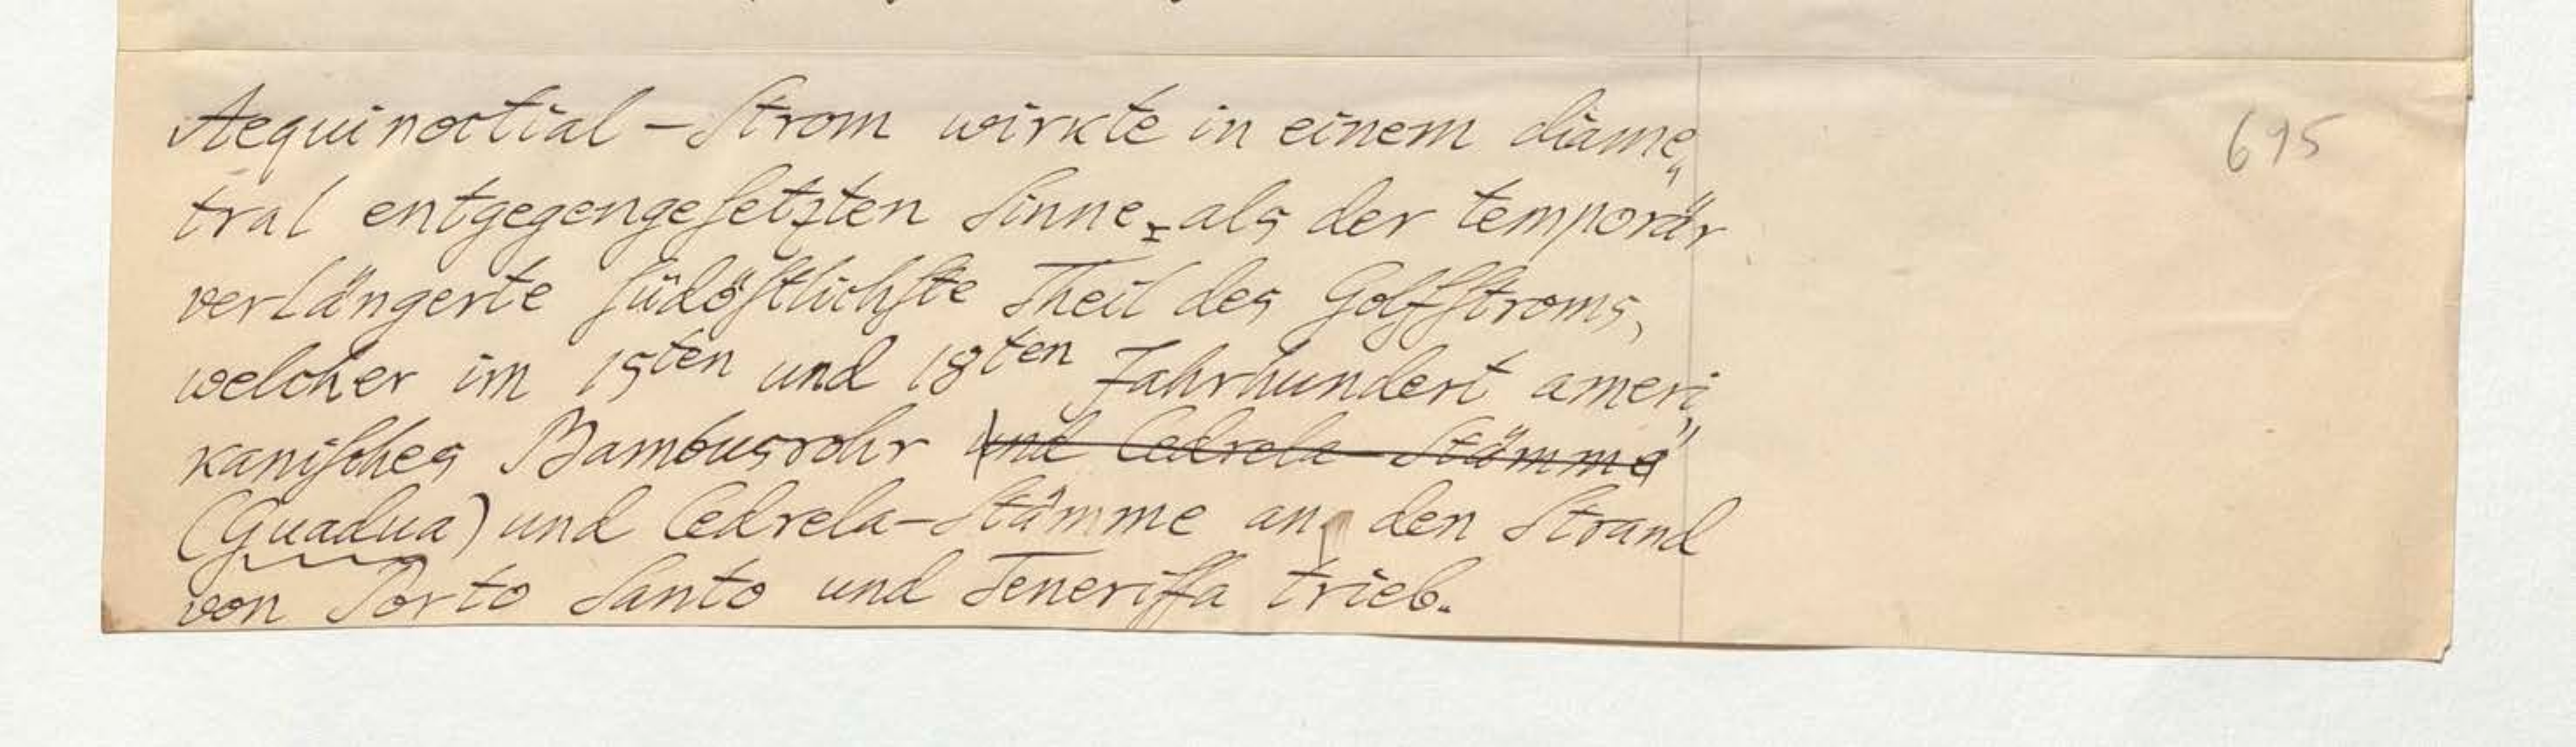 Aequinoctial-Strom wirkte in einem diame„ 695
tral entgegengesetzten Sinne, als der temporär
verlängerte südöstlichste Theil des Golfstroms,
welcher im 15ten und 18ten Jahrhundert ameri„
kanisches Bambusrohr und Cedrela-Stämme
(Guadua) und Cedrela-Stämme an den Strand
von Porto Santo und Teneriffa trieb.